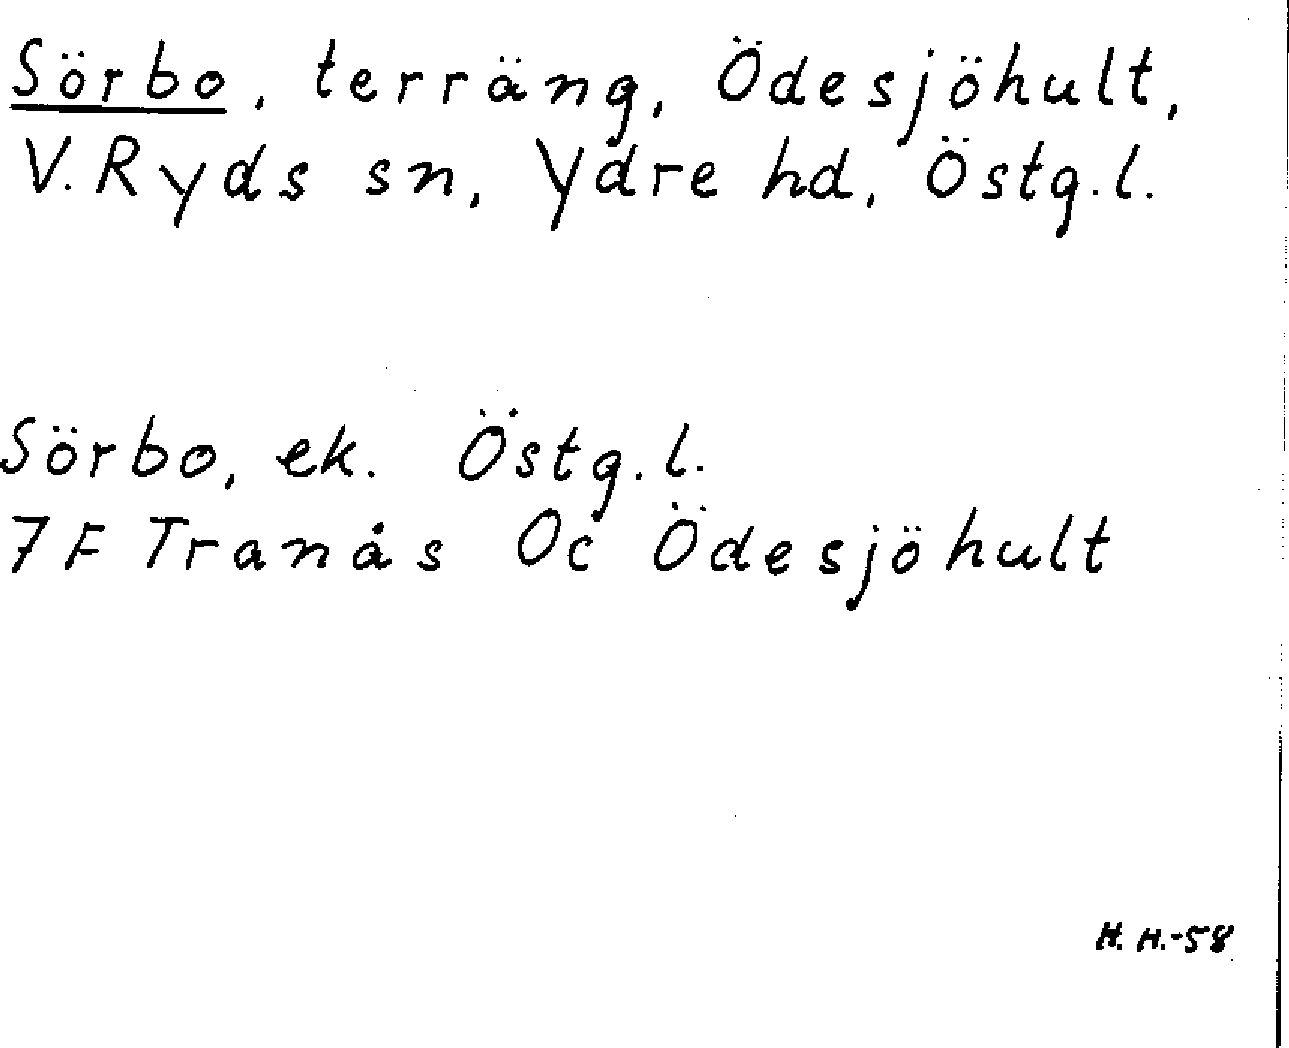 Sörbo, terräng, Ödesjöhult,
V. Ryds sn, Ydre hd, Östg.l.
Sörbo, ek. Östg.l.
7F Tranås Oc Ödesjöhult
H. H.-58